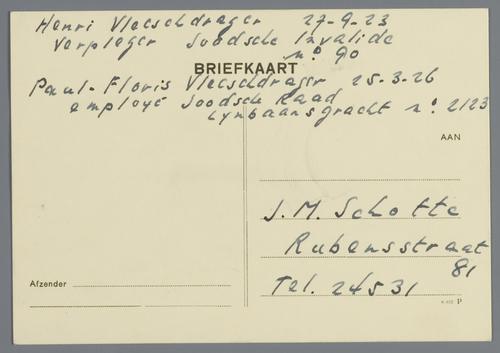 Henri Vleeschdrager 27-9-23
Verpleger Joodsche Invalide
n° 90
BRIEFKAART
Paul-Floris Vleeschdrager 25-3-26
employé Joodsche Raad
Lynbaansgracht n° 2123
AAN
J. M. Schotte
Rubensstraat
81
Tel. 24531
Afzender
P